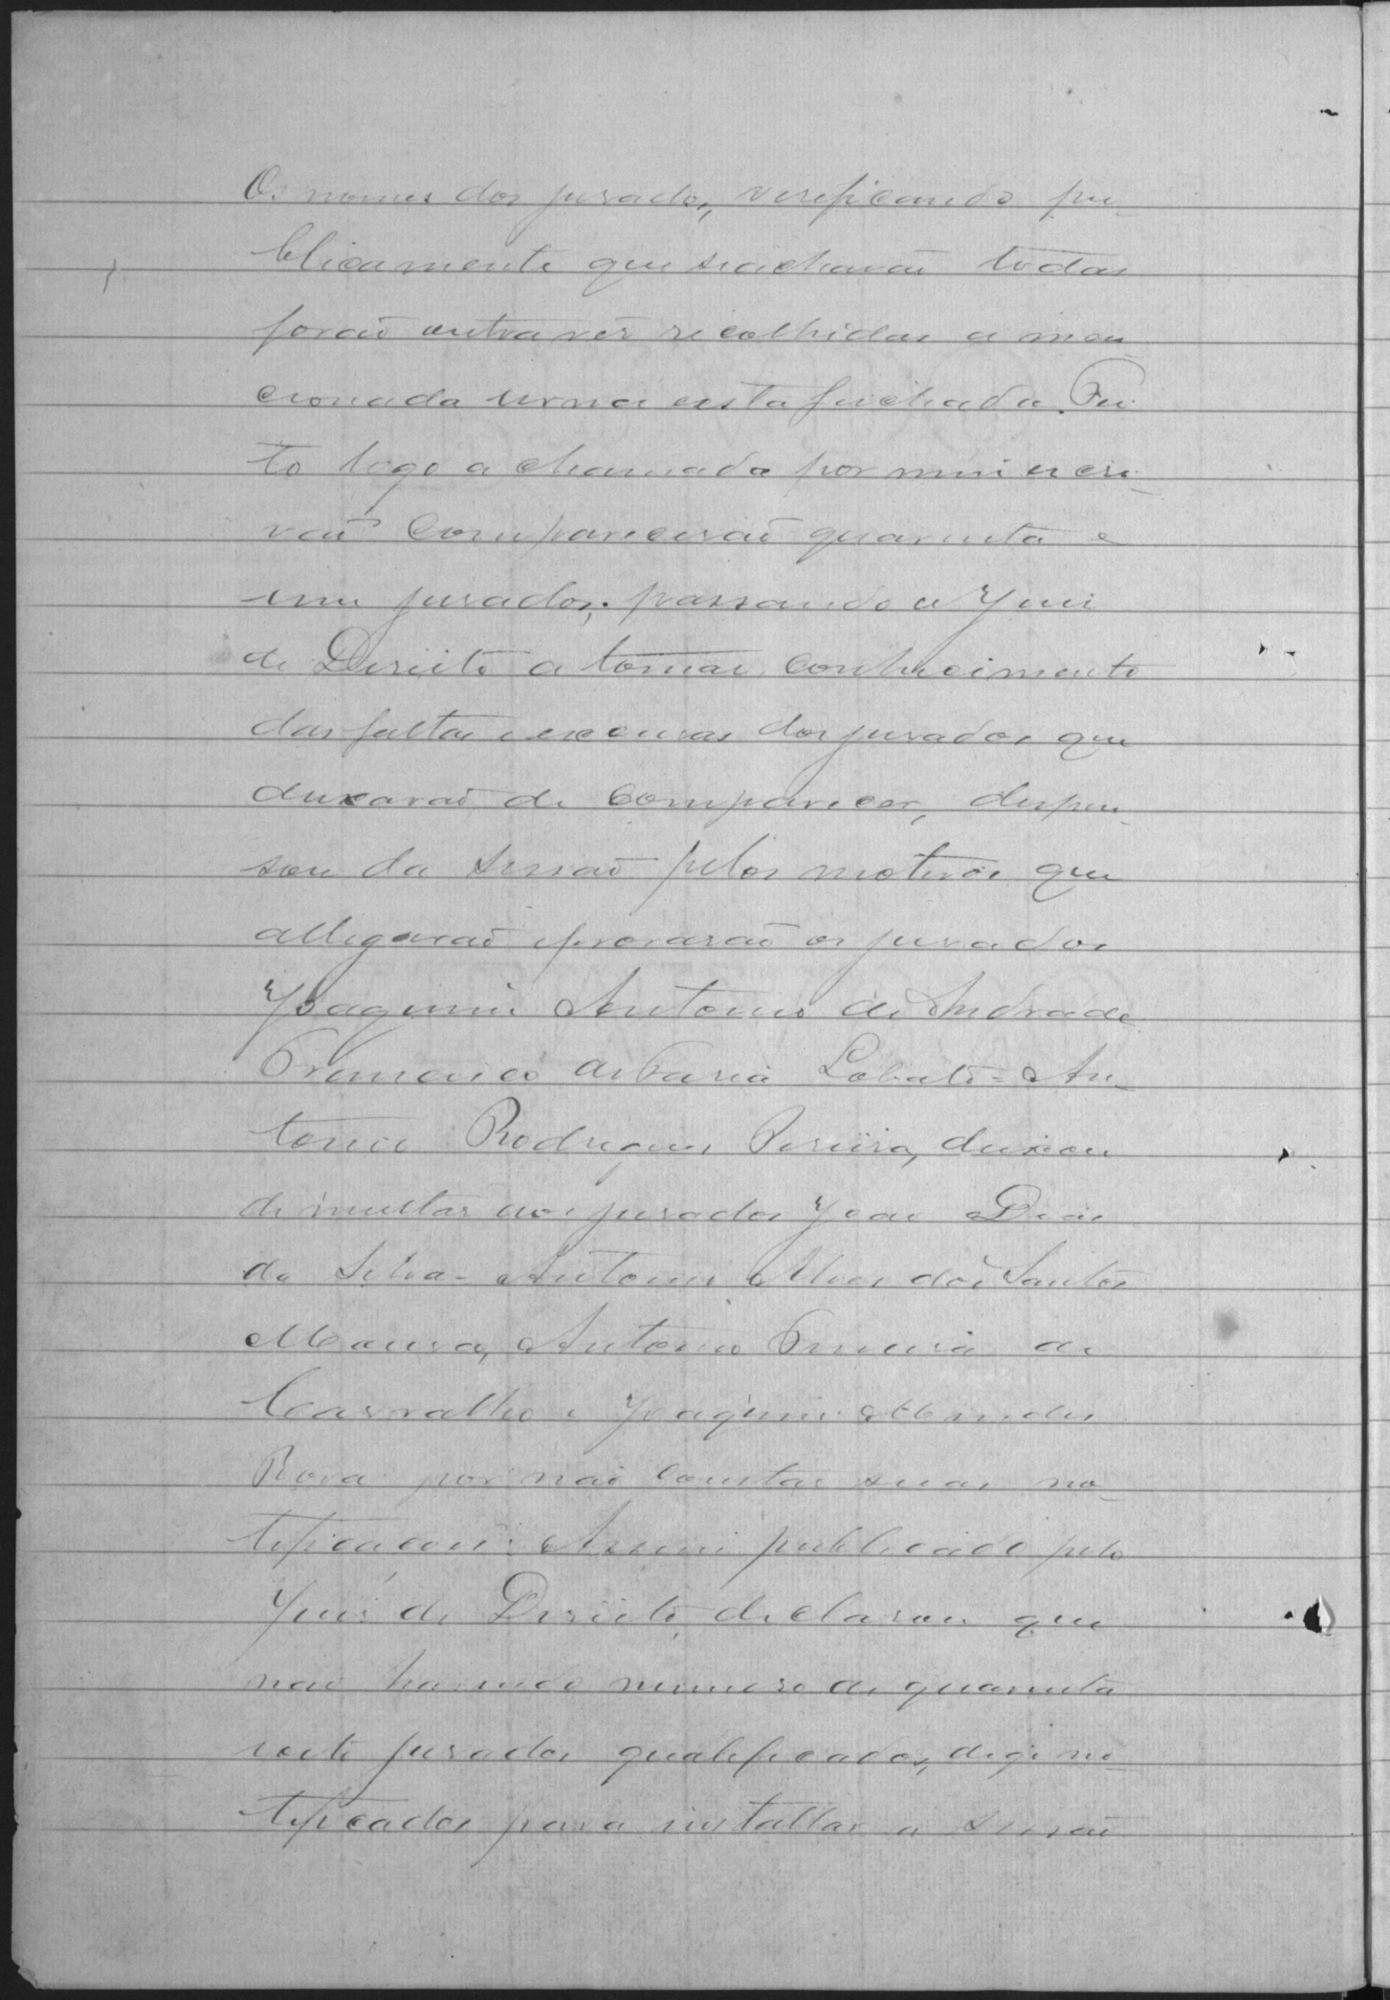 Os nomes dos jurados, verificando pu-
blicamente que se achavaõ todas
foraõ outra vez recolhidas a men
cionada urna esta fechada. Fei
to logo a chamada por mim escri-
vaõ compareceraõ quarenta e
um jurados; passando o Juiz
de Direito a tomar conhecimento
das faltas e excusas dos jurados que
deixaraõ de comparecer, dispen-
sou da sessaõ pelos motivos que
allegaraõ e provaraõ os jurados
Joaquim Antonio de Andrade
Francisco de Faria Lobato - An-
tonio Rodrigues Pereira, deixou
de multar aos jurados Joaõ Dias
da Silva - Antonio Alves dos Santos
Moura, Antonio Ferreira de
Carvalho e Joaquim Mendes
Rosa por naõ constar suas no-
tificações. Assim publicado pelo
Juiz de Direito, declarou que
naõ havendo numero de quarenta
oito jurados qualificados, digo no-
tificados para installar a sessaõ